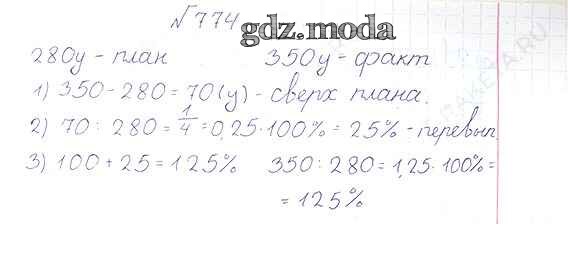 №774
gdz.moda
280у – план 350у – факт
1) 350 – 280 = 70 (у) – сверх плана.
2) 70 : 280 = 1/4 = 0,25·100% = 25% – перевып.
3) 100 + 25 = 125% 350 : 280 = 1,25·100% =
= 125%